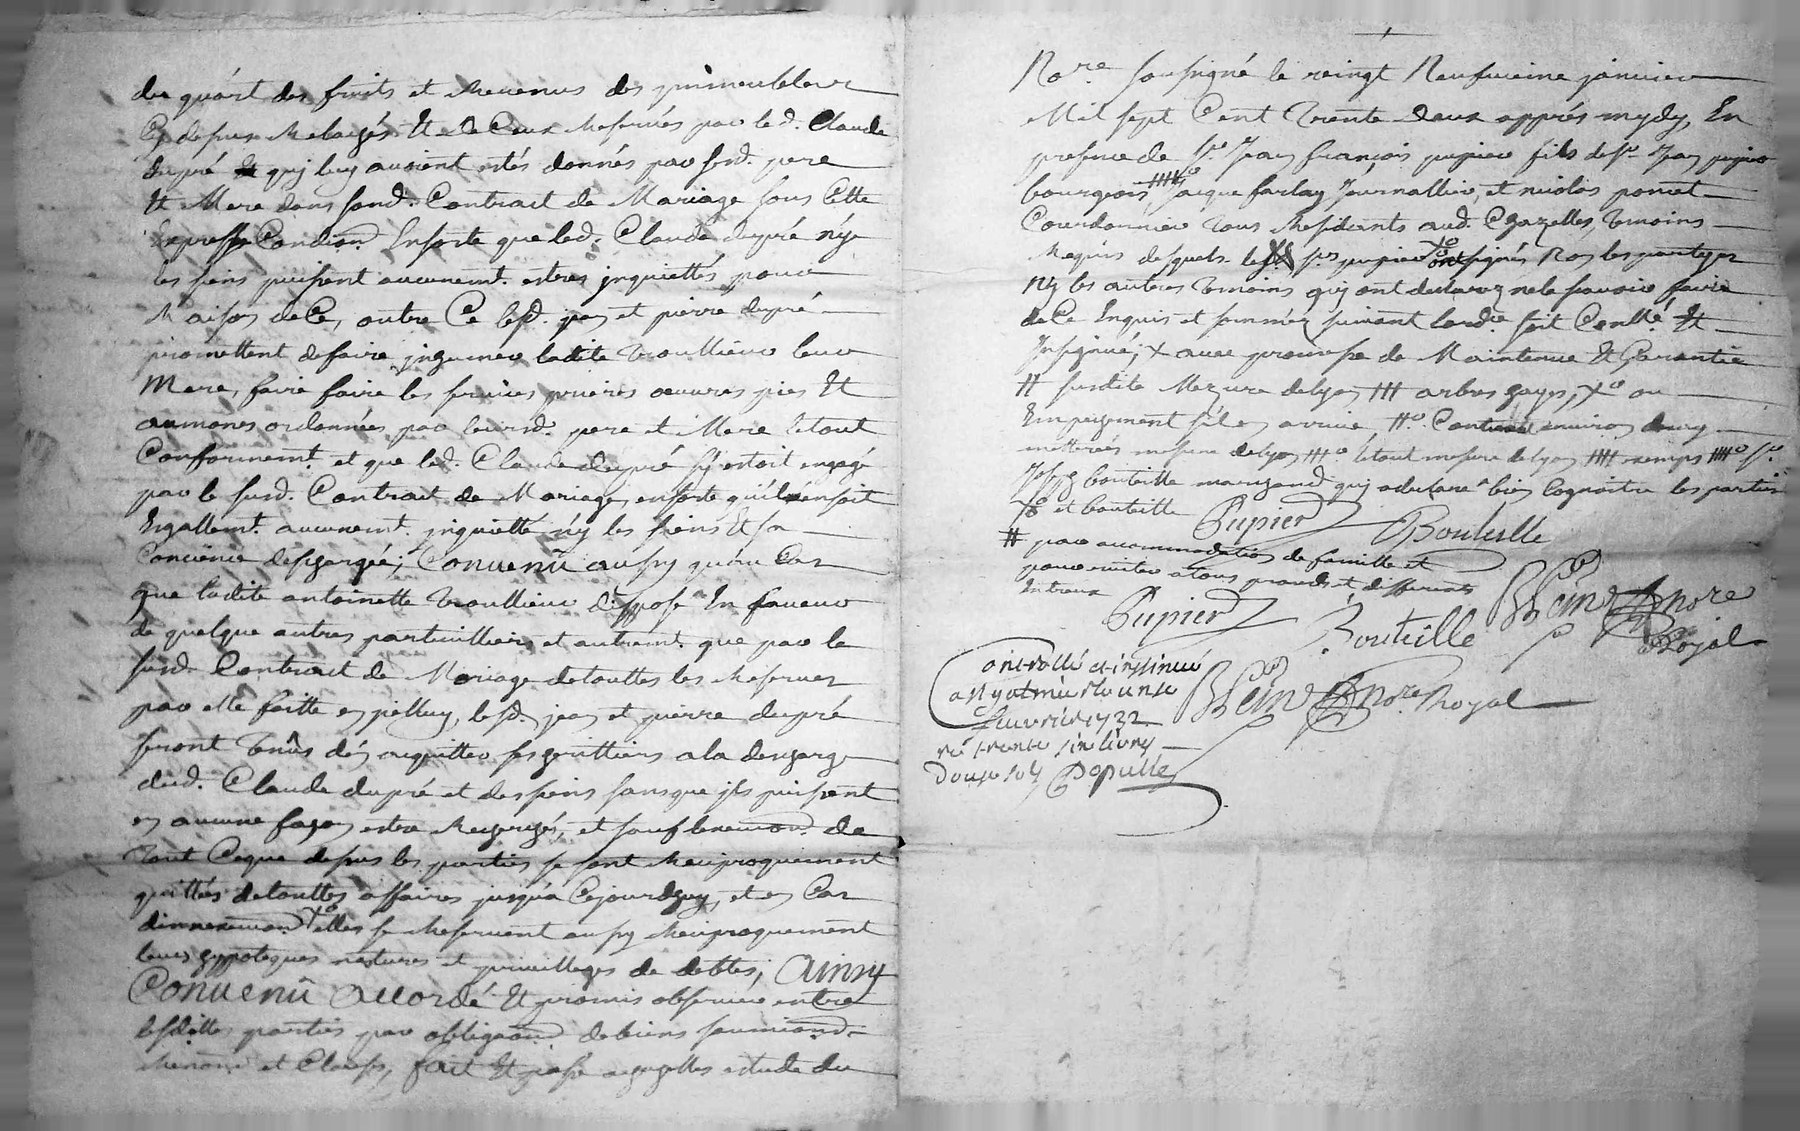 des quart des fruits et Revenus des jmmeubles
Cy dessus Relargés Et de Ceux Reservés par led. Claude
dupré quj luy auroient estés donnés par sesd. pere
Et Mere dans sond. Contract de Mariage sous Cette
Expresse Condion Ensorte que led. Claude dupré n'y
les siens puissent aucunemt. estres jnquiettés pour
Raison de Ce, outre Ce lesd. jean et pierre dupré
promettent de faire jnhumer ladite Troullieur leur
Mere, faire faire les services prieres oeuvres pies Et
aumones ordonnées par leursd. pere et Mere le tout
Conformemt. et que led. Claude dupré s'y estoit engagé
par le susd. Contract de Mariage, ensorte qu'il n'en soit
Esgallemt. aucunemt. jnquietté n'y les siens Et sa
Concience deschargée; Convenû aussy qu'au Cas
que ladite antoinette Troullieur dispose En faveur
de quelque autres particulliers et autremt. que par le
susd. Contract de Mariage de touttes les Reserves
par elle faitte en jcelluy, lesd. jean et pierre dupré
seront tenûs d'en acquitter ses heritiers a la descharge
dud. Claude dupré et des siens sans que jls puissent
en aucune façon estre Recherchés, et sauf de
Tout Ceque dessus les parties se sont Reciproquement
quittées de touttes affaires jusqu'a Cejourdhuy, et en Cas
elles se Reservent aussy Reciproquement
leurs hypoteques natures et privilleges de debtes; Ainsy
Convenû accordé Et promis observer entre
lesdittes parties par obligaon de biens soumiond.
Renond et Clauses, fait Et passé a chazelles estude du
No.re soussigné le vingt Neufvieme janvier
Mil sept Cent Trente deux apprés mydy, En
presence de Sr. Jean françois pupier fils de Sr. Jean pupier
bourgeois jacque farlay Journallier, et nicolas poncet
Courdonnier Tous Residents aud. Chazelles, Temoins
Requis desquels le Sr. pupier ont signés Non les parties
Ny les autres Temoins quj ont declarez ne le scavoir faire
de Ce Enquis et sommés suivant lordce. soit Conllé Et
Insignué; X avec promesse de Maintenue Et Garantie
# susdite Mezure de lyon ### arbres gayes, Xo ou
Empechement s'il en arrive, #o. Contenant environ
metterées mesure de lyon ##o le tout mesure de lyon Sr.
Joseph bouteille marchand quj a declaré bien Cognoitre les parties
et bouteille Pupier Bouteille
# par accommodation de famille et
pour eviter a tous procés et differents
Entreux
Pupier Bouteille Nore
Royal
Controllé et insinué
a St galmier le unze
feuvrier 1732
rē trente six livres
Douze sols Dopulle
Nore. Royal